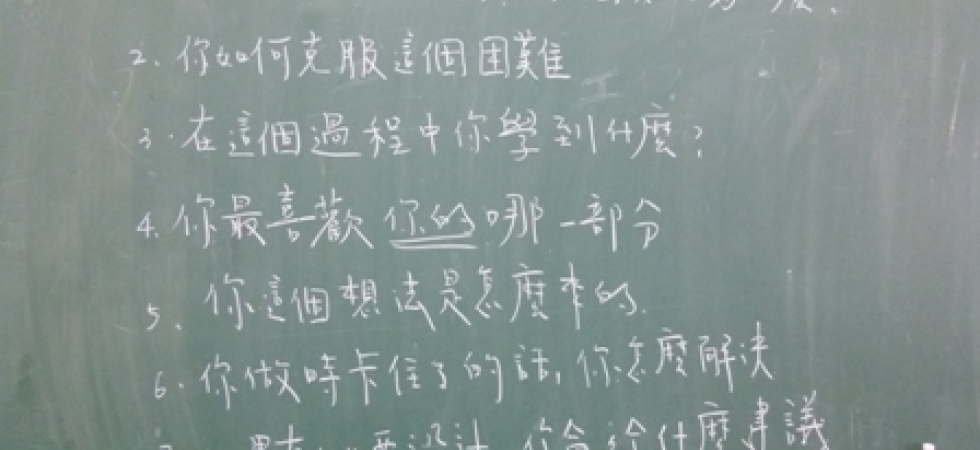 2. 你如何克服這個困難
3. 在這個過程中你學到什麼?
4. 你最喜歡你的哪一部分
5. 你這個想法是怎麼來的.
6. 你做時卡住了的話,你怎麼解決
要設計 你會給什麼建議